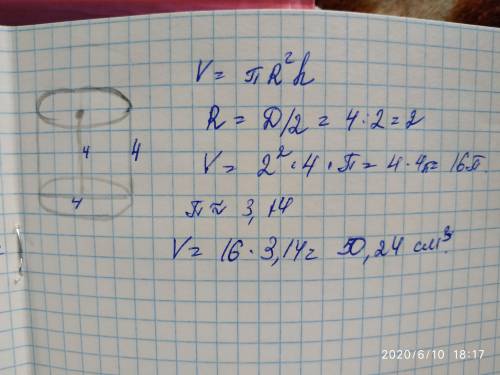 V = πR²h
R = D/2 = 4 : 2 = 2
4 4
V = 2² · 4 · π = 4 · 4π = 16π
4
π ≈ 3,14
V = 16 · 3,14 = 50,24 см³.
2020/6/10 18:17